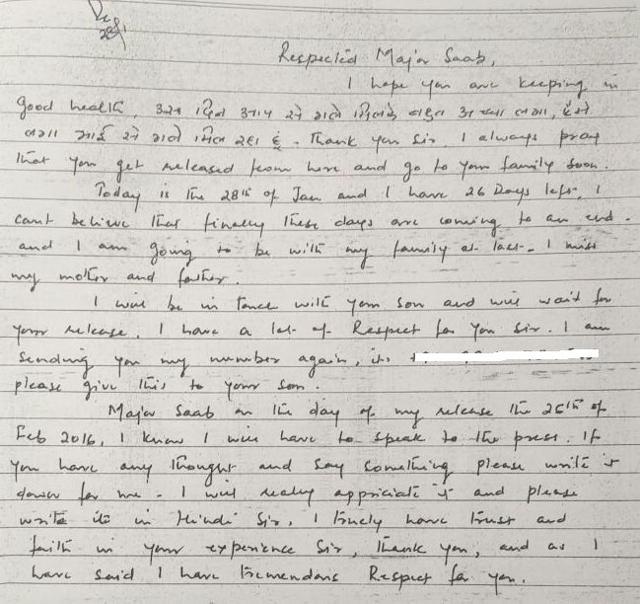 28/1
Respected Major Saab,
I hope you are keeping in
Good health, उस दिन आप से गले मिलके बहुत अच्छा लगा, ऐसे
लगा भाई से गले मिल रहा हूँ. Thank you Sir. I always pray
that you get released from here and go to your family soon.
Today is the 28th of Jan and I have 26 Days left, I
cant believe that finally these days are coming to an end.
and I am going to be with my family at last. I miss
my mother and father.
I will be in touch with your son and will wait for
your release. I have a lot of Respect for you Sir. I am
sending you my number again, its
please give this to your son.
Major Saab on the day of my release the 25th of
Feb 2016, I know I will have to speak to the press. If
you have any thought and say something please write it
down for me. I will really appriciate it and please
write it in Hindi Sir, I truely have trust and
faith in your experience Sir, Thank you, and as I
have said I have tremendous Respect for you.